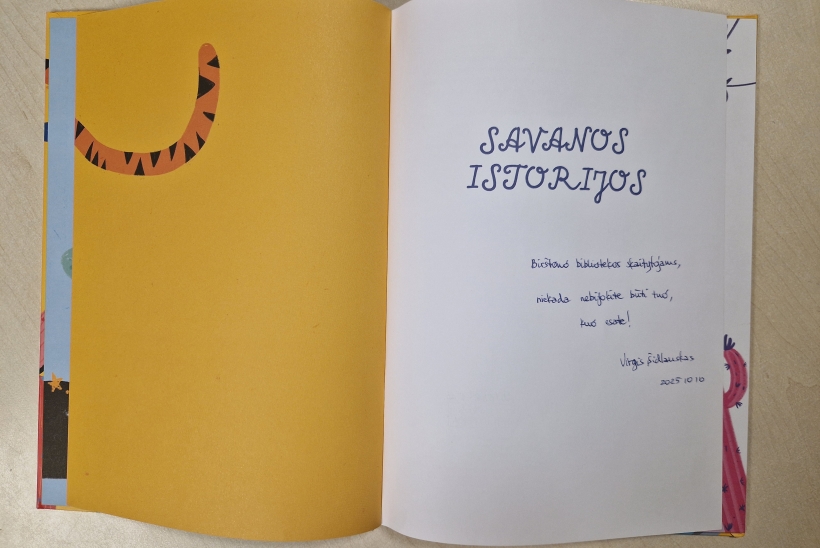 SAVANOS
ISTORIJOS
Birštono bibliotekos skaitytojams,
niekada nebijokite būti tuo,
kuo esate!
Virgis Šidlauskas
2025 10 10